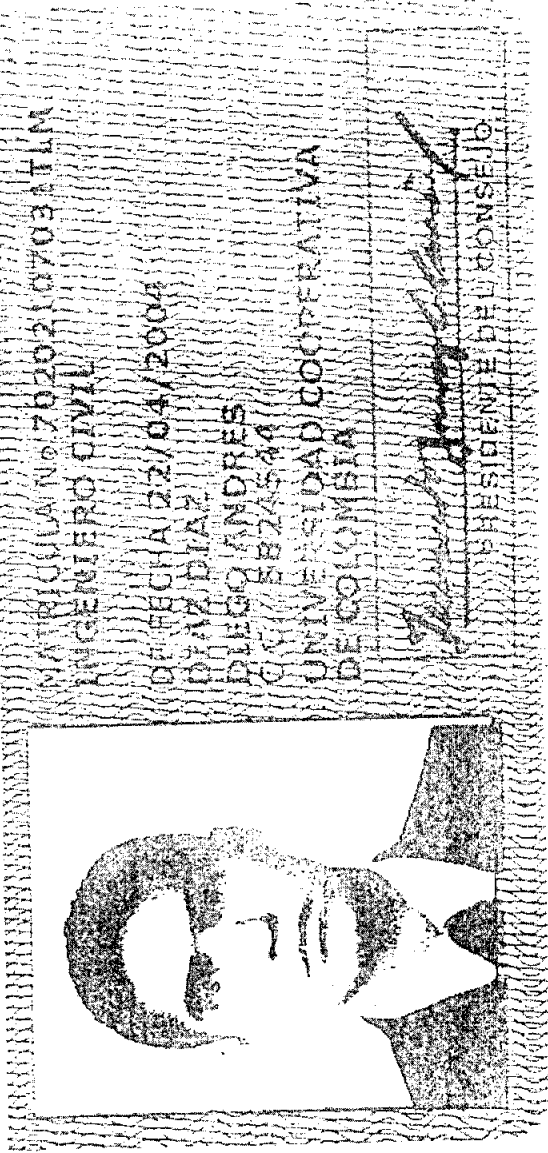 MATRICULA No.
INGENIERO CIVIL
DE FECHA 22/04/2004
DIAZ DIAZ
DIEGO ANDRES
UNIVERSIDAD COOPERATIVA
DE COLOMBIA
PRESIDENTE DEL CONSEJO